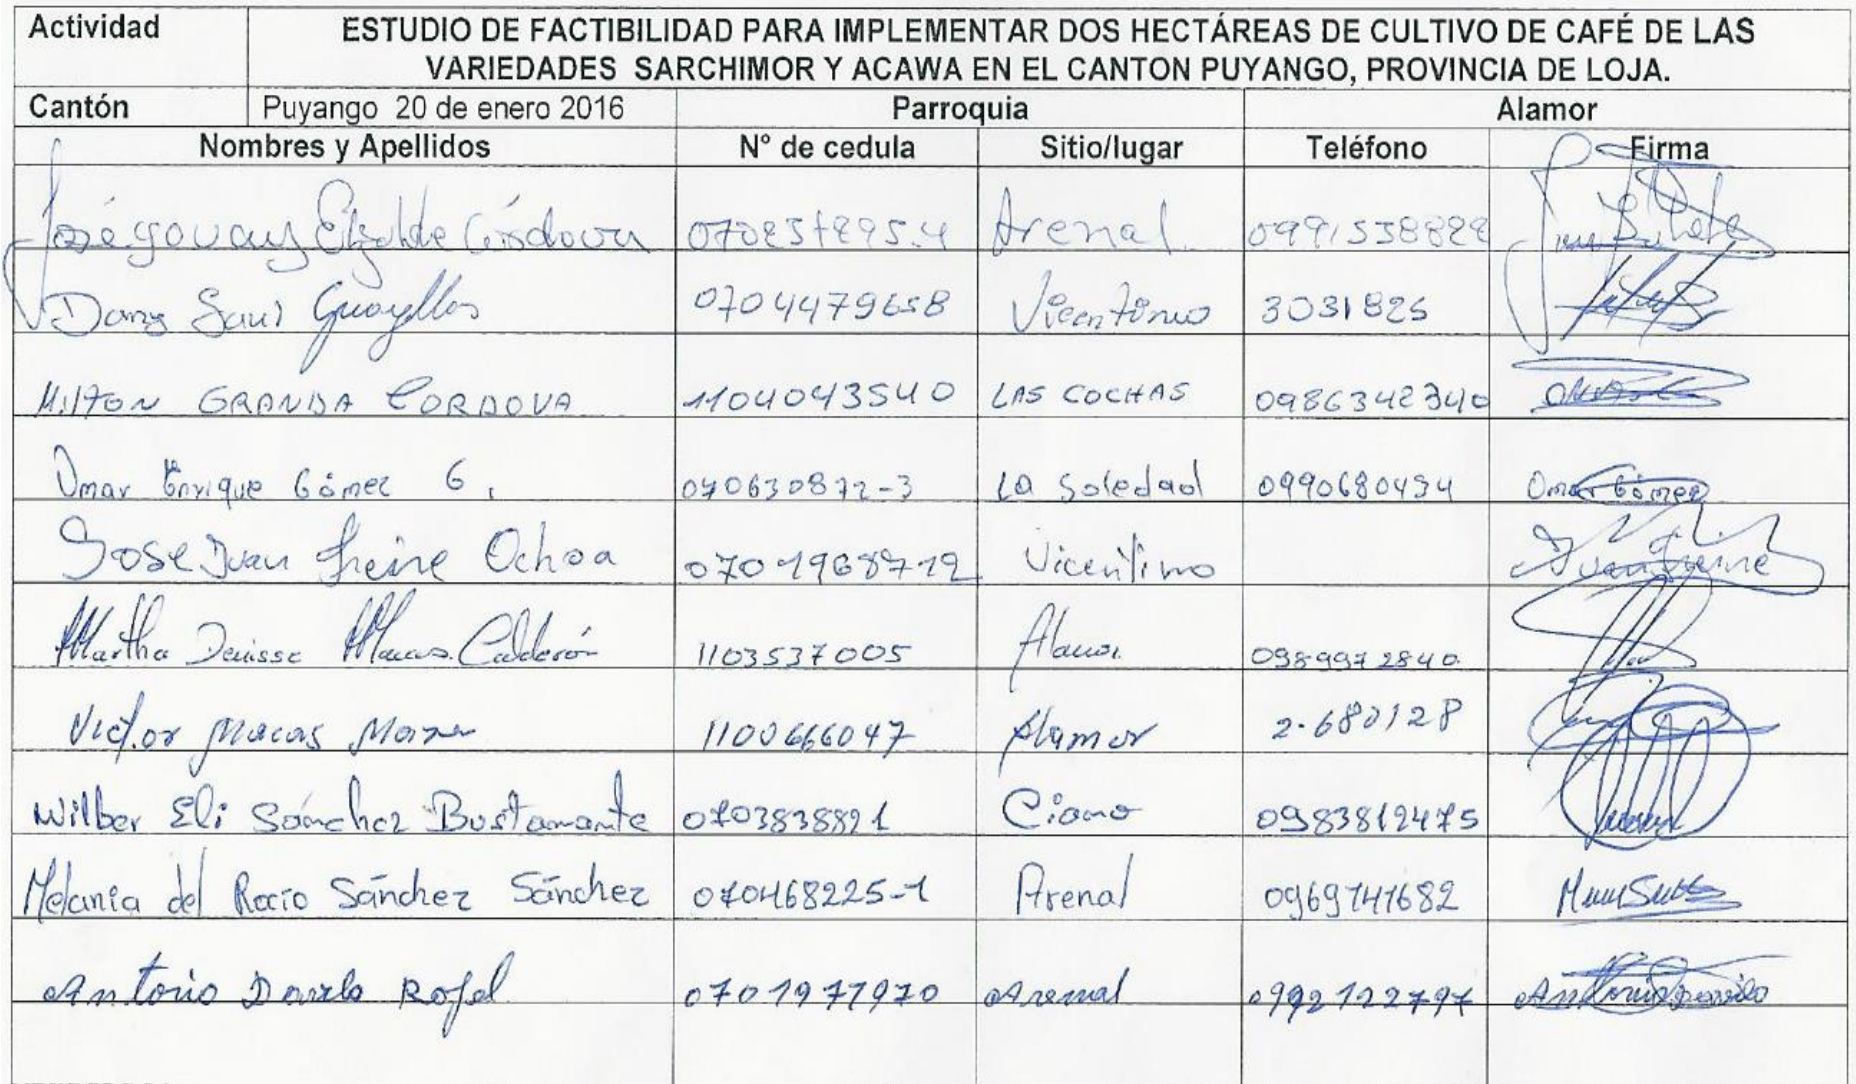 Actividad ESTUDIO DE FACTIBILIDAD PARA IMPLEMENTAR DOS HECTÁREAS DE CULTIVO DE CAFÉ DE LAS
VARIEDADES SARCHIMOR Y ACAWA EN EL CANTON PUYANGO, PROVINCIA DE LOJA.
Cantón Puyango 20 de enero 2016 Parroquia Alamor
Nombres y Apellidos N° de cedula Sitio/lugar Teléfono Firma
José Elizalde Córdova Arenal
Saul Guayllas 0704479658 Vicentino 3031826
MILTON GRANDA CORDOVA 1104043540 LAS COCHAS 0986342340
Omar Enrique Gómez G. 070630872-3 La Soledad 0990680434 Omar Gómez
Jose Juan Freire Ochoa 0701968712 Vicentino Juan Freire
Martha Denisse Macas Calderón 1103537005 Alamor 0989972840
Victor Macas 1100666047 Alamor 2-680128
Wilber Eli Sánchez Bustamante 0703838821 Ciano 0983812475
Melania del Rocío Sánchez Sánchez 070468225-1 Arenal 0969741682
Antonio Davila Rofel 0701977970 Arenal 0992122797 Antonio Davila